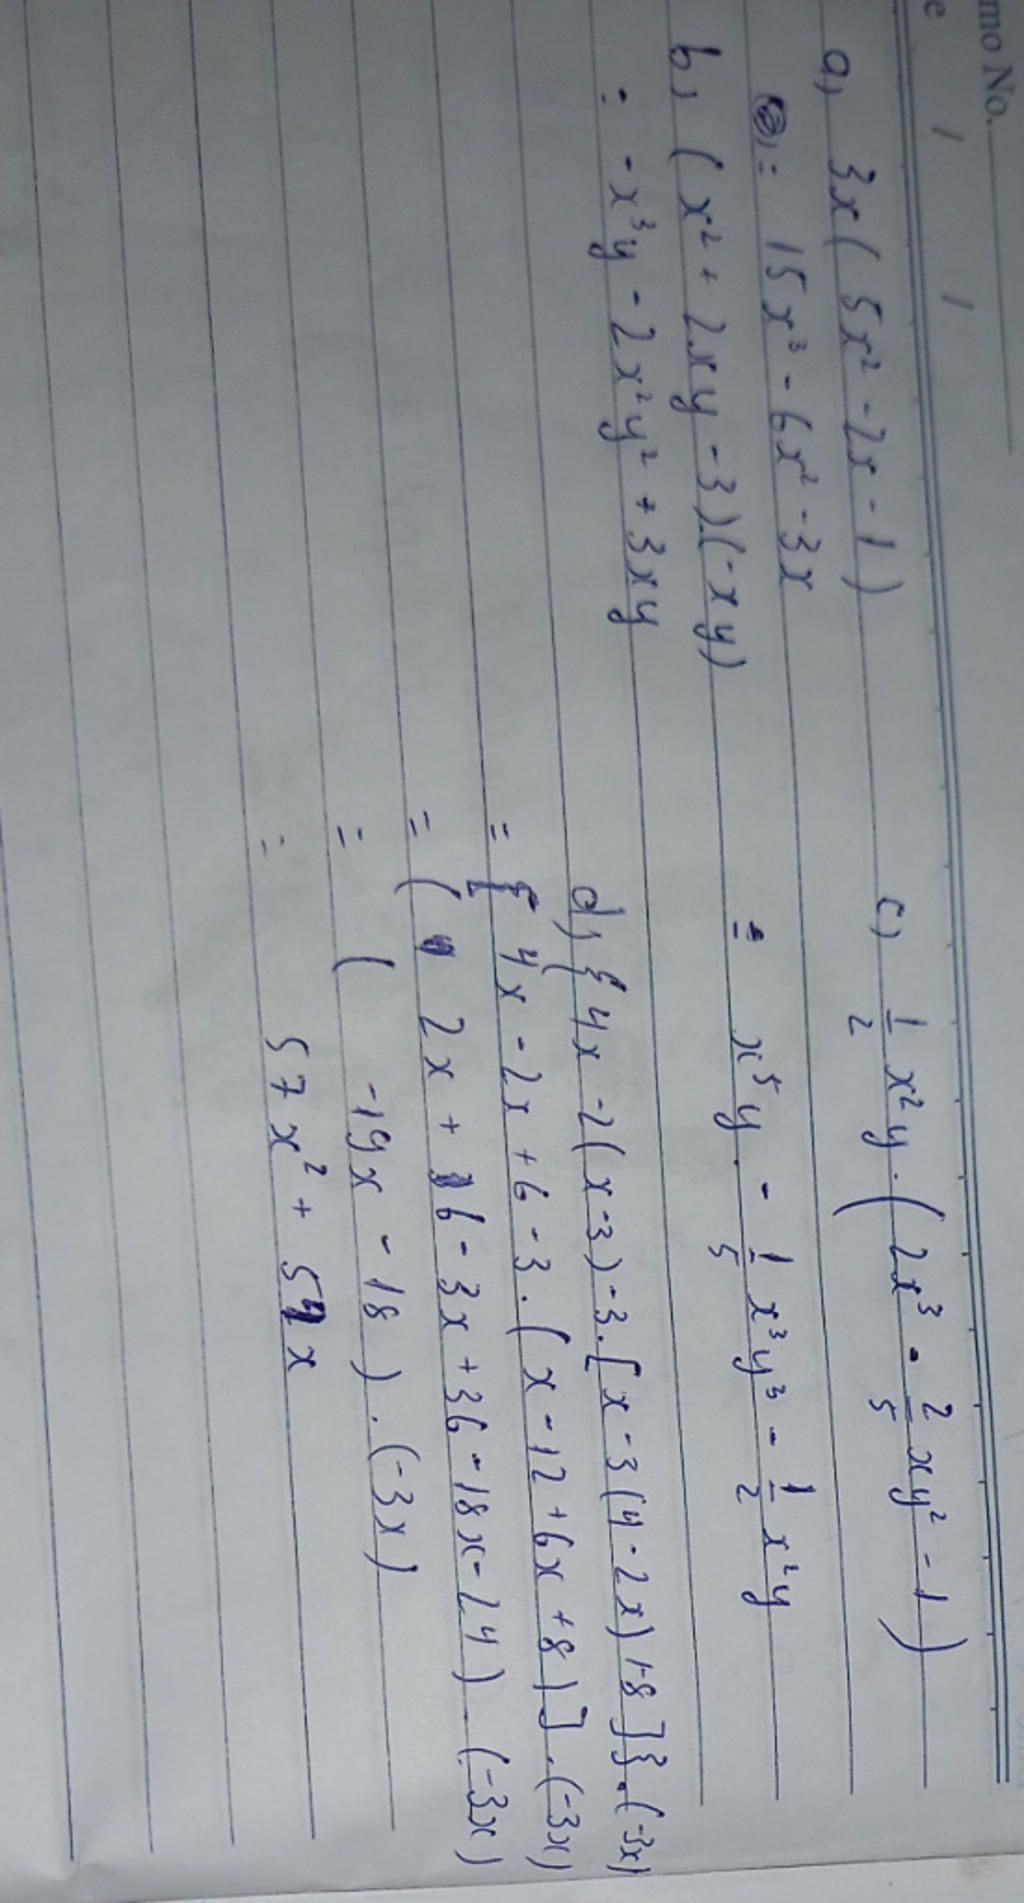 mo No.
e / /
a) 3x(5x² - 2x - 1)
= 15x³ - 6x² - 3x
b) (x² + 2xy - 3).(-xy)
= -x³y - 2x²y² + 3xy
c) 1/2 x²y.(2x³ - 2/5 xy² - 1)
= x⁵y - 1/5 x³y³ - 1/2 x²y
d) {4x - 2(x-3) - 3.[x - 3(4-2x) + 8]}.(-3x)
= [4x - 2x + 6 - 3.(x - 12 + 6x + 8)].(-3x)
= (2x + 6 - 3x + 36 - 18x - 24).(-3x)
= (-19x - 18).(-3x)
= 57x² + 54x